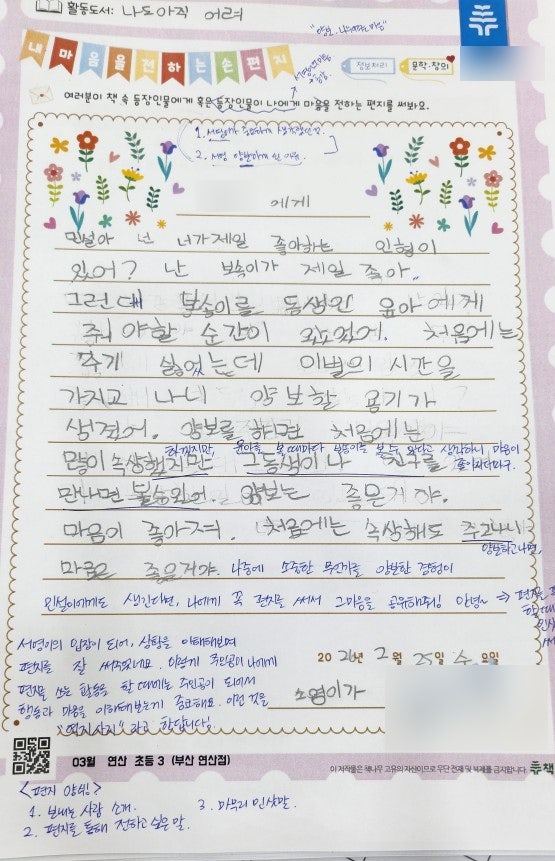 활동도서: 나도 아직 어려
"양보, 나누려는 마음"
내 마음을 전하는 손 편지
정보처리
문학·창의
여러분이 책 속 등장인물에게 혹은 등장인물이 나에게 마음을 전하는 편지를 써봐요.
에게
민설아 넌 너가 제일 좋아하는 인형이
있어? 난 보송이가 제일 좋아.
그런대 보송이를 동생인 윤아에게
줘야할 순간이 있었어. 처음에는
주기 싫었는데 이별의 시간을
가지고 나니 양보할 용기가
생겼어. 양보를 하면 처음에는
하겠지만, 윤아를 볼 때마다 보송이를 볼 수 있다고 생각하니, 마음이
좋아지더라구.
많이 속상했지만 그 동생이나 친구를
만나면 양보는 좋은거야.
마음이 좋아져. 처음에는 속상해도 주고나니
양보하고나면,
마음은 좋은거야. 나중에 소중한 무언가를 양보한 경험이
민설이에게도 생긴다면, 나에게 꼭 편지를 써서 그 마음을 공유해줘! 안녕~
서영이의 입장이 되어, 상황을 이해해보며
편지를 잘 써주었네요. 이렇게 주인공이 나에게
편지를 쓰는 활동을 할 때에는 주인공이 되어서
행동과 마음을 이해해보는게 중요해요. 이런 것을
"편지 사지" 라고 한답니다!
2026년 2월 25일 수요일
소영이가
03월 연산 초등 3 (부산 연산점)
이 저작물은 책나무 고유의 자산이므로 무단 전재 및 복제를 금지합니다.
<편지 양식>
1. 보내는 사람 소개.
2. 편지를 통해 전하고 싶은 말.
3. 마무리 인삿말.